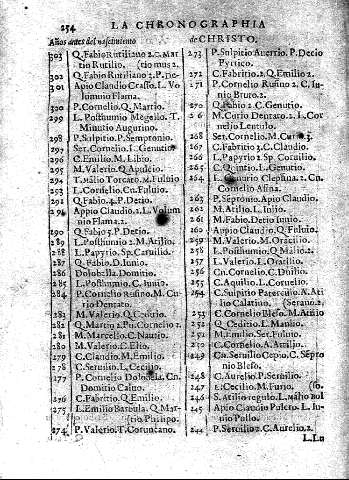 254
LA CHRONOGRAPHIA
Años antes del nascimiento
de CHRISTO.
303 Q. Fabio Rutiliano 2. C. Mar
tio Rutilio. (tio mus 2.
302 Q. Fabio Rutiliano 3. P. De-
301 Apio Claudio Crasso. L. Vo
lumnio Flama.
300 P. Cornelio. Q. Martio.
299 L. Posthumio Megello. T.
Minutio Augurino.
298 P. Sulpitio. P. Sempronio.
297 Ser. Cornelio. L. Genutio
296 C. Emilio. M. Libio.
295 M. Valerio. Q. Apuleio.
294 T. Torcato. M. Fuluio
293 L. Cornelio. Cn. Fuluio.
292 Q. Fabio. 4. P. Detio.
291 Appio Claudio 2. L. Volum
nio Flama.
290 Q. Fabio 5. P. Detio.
289 L. Posthumio 2. M. Atilio.
288 L. Papyrio. Sp. Caruilio.
287 Q. Fabio. D. Iunio.
286 Dolobella. Domitio.
285 L. Posthumio. C. Iunio.
284 P. Cornelio Rufino. M. Cu
rio Dentato.
283 M. Valerio. Q. Ceditio.
282 Q. Martio 2. Pu. Cornelio 2.
281 M. Marcelo. C. Nautio.
280 M. Valerio. C. Elio.
279 C. Claudio. M. Emilio.
278 C. Seruilio. L. Cecilio.
277 P. Cornelio Dolobela. Cn.
Domitio Caluo.
276 C. Fabritio. Q. Emilio.
275 L. Emilio Barbula. Q. Mar
tio Philipo.
274 P. Valerio. T. Coruncano.
273 P. Sulpitio Auerrio. P. Decio
Pyrtico.
272 C. Fabritio. 2. Q. Emilio 2.
271 P. Cornelio Rufino 2. C. Iu
nio Bruto 2.
270 Q. Fabio 2. C. Genutio.
M. Curio Dentato. 2. L. Cor
nelio Lentulo.
268 Ser. Cornelio. M. Curio 3.
267 C. Fabritio 3. C. Claudio.
266 L. Papyrio 2. Sp. Coruilio.
265 C. Quintio. L. Genutio.
264 L. Genutio Clepsina. 2. Cn.
Cornelio Asina.
263 P. Septonio. Apio Claudio
262 M. Atilio. L. Iulio.
261 M. Fabio. Detio Iunio.
260 Appio Claudio. Q. Fabio.
259 M. Valerio. M. Otacilio.
258 L. Posthumio. Q. Malio 2.
257 L. Valerio. L. Otacilio.
256 Cn. Cornelio. C. Duilio.
255 C. Aquilio. L. Cornelio.
254 C. Sulpitio Paterculo. A. Ati
lio Calatino. (Serano. 2.
253 C. Cornelio Bleso. M. Atilio
252 Q. Ceditio. L. Manlio.
251 M. Emilio. Ser. Fuluio.
250 C. Cornelio. A. Attilio.
249 Cn. Seruilio Cepio. C. Sépro
nio Bleso.
248 C. Aurelio. P. Seruilio.
247 L. Cecilio. M. Furio. (so.
246 S. Atilio regulo. L. Málio vol
245 Apio Claudio Pulcro. L. Iu
nio Pollo.
244 P. Seruilio 2. C. Aurelio 2.
L. Lu